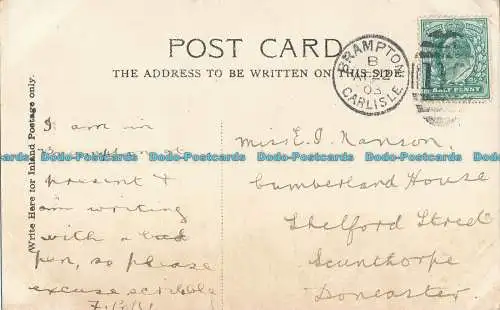 POST CARD
THE ADDRESS TO BE WRITTEN ON THIS SIDE
BRAMPTON
B
AP 22
03
CARLISLE
HALF PENNY
(Write Here for Inland Postage only.
I am in
present &
am writing
with a bad
pen, so please
excuse scribble
Miss E. J. Nanson,
Cumberland House
Shelford Street
Scunthorpe
Doncaster.
Dodo-Postcards Dodo-Postcards Dodo-Postcards Dodo-Postcards